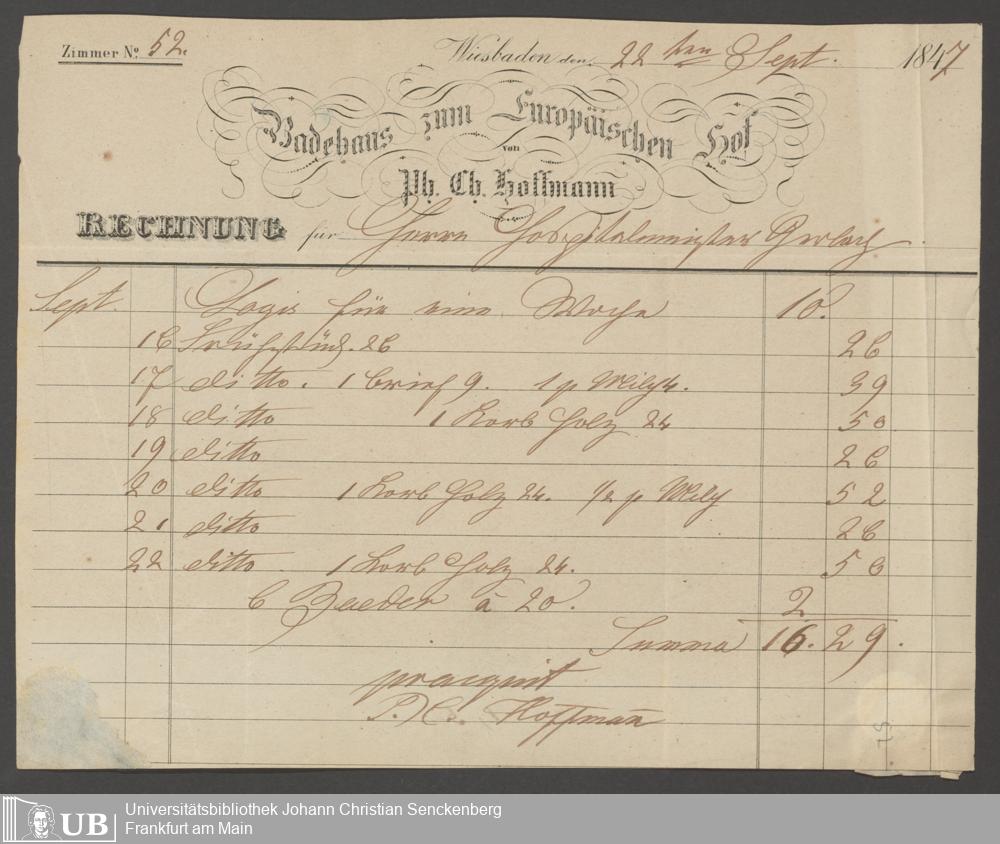 Zimmer No. 52.
Wiesbaden den 22ten Sept. 1847
Badehaus zum Europäischen Hof
von
Ph. Ch. Hoffmann
RECHNUNG für Herrn Hospitalmeister Gerlach.
Sept. Logis für eine Woche 10.
16 Frühstück. 26 26
17 ditto. 1 Brief 9. 1 p Milch 4. 39
18 ditto 1 Korb Holz 24 50
19 ditto 26
20 ditto 1 Korb Holz 24. 1/2 p Milch 52
21 ditto 26
22 ditto. 1 Korb Holz 24. 50
6 Baeder à 20. 2
Summa 16. 29.
pr acquit
P. Ch. Hoffmann
UB
Universitätsbibliothek Johann Christian Senckenberg
Frankfurt am Main